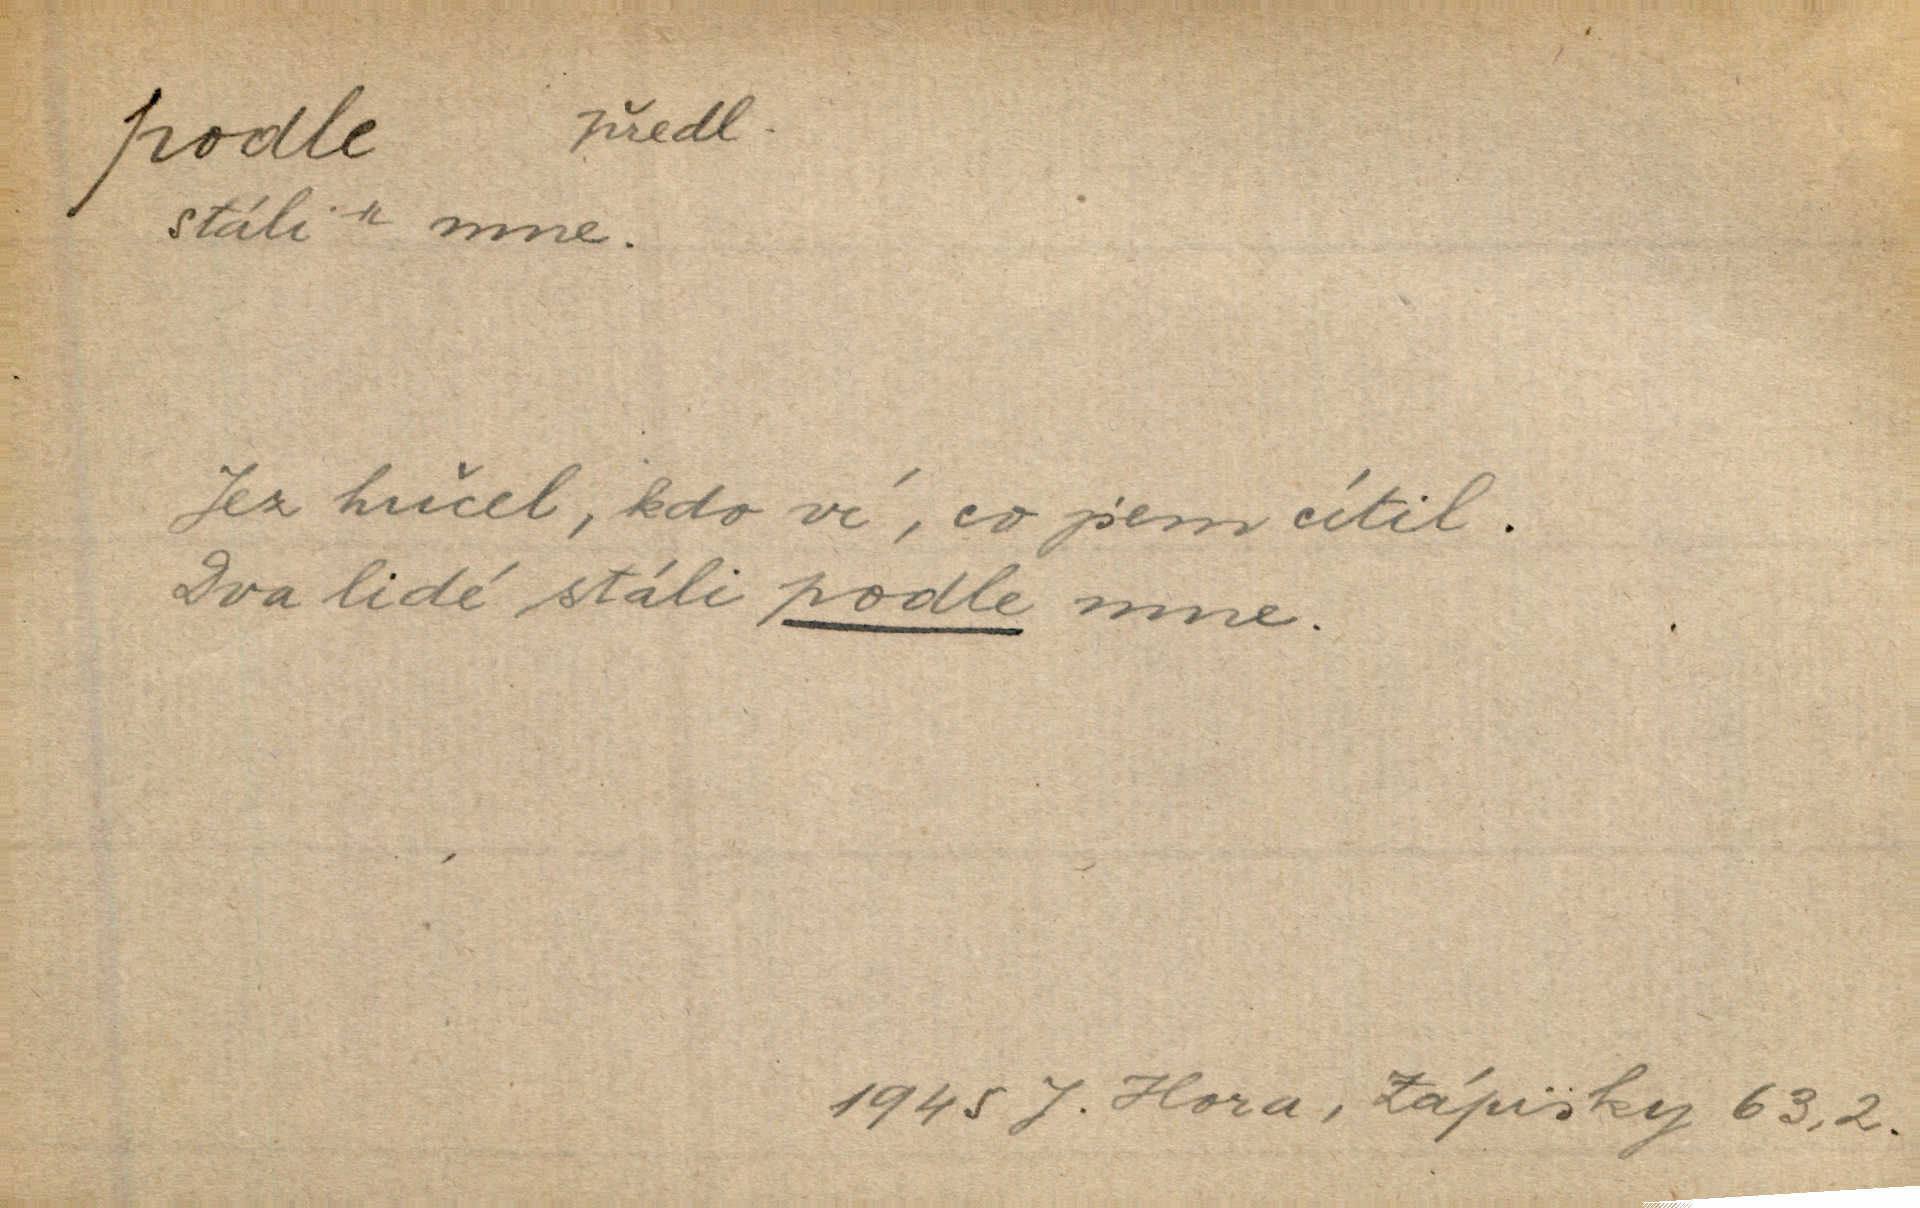 podle předl.
stáli -"- mne.
Jez hučel, kdo ví, co jsem cítil.
Dva lidé stáli podle mne.
1945 J. Hora, Zápisky 63,2.